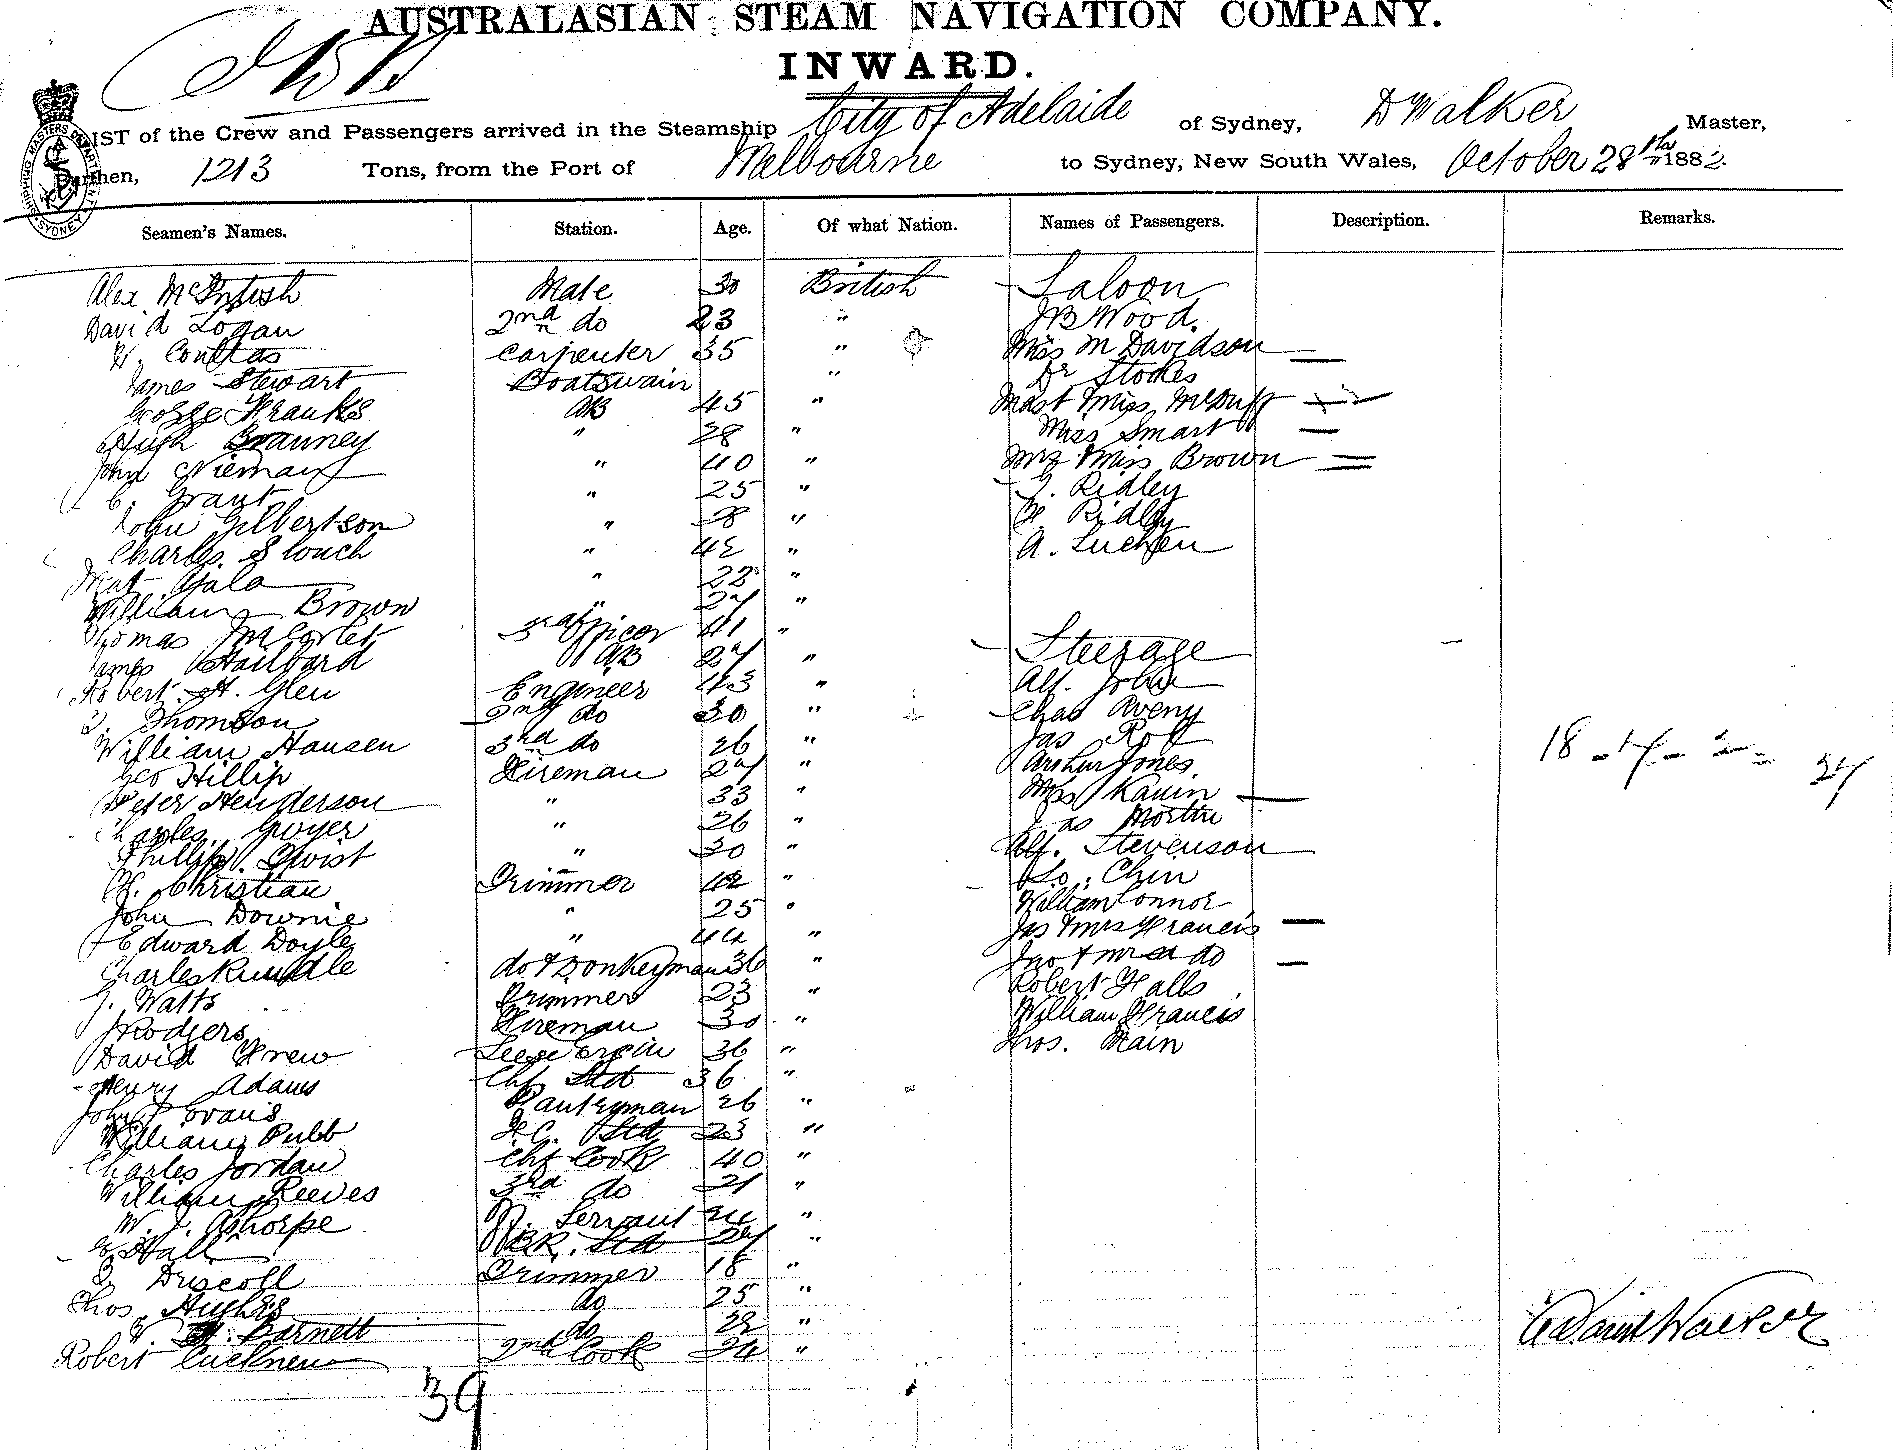 AUSTRALASIAN STEAM NAVIGATION COMPANY.
INWARD.
LIST of the Crew and Passengers arrived in the Steamship City of Adelaide of Sydney, D Walker Master,
Burthen, 1213 Tons, from the Port of Melbourne to Sydney, New South Wales, October 28th 1882.
Seamen's Names. Station. Age. Of what Nation. Names of Passengers. Description. Remarks.
Alex McIntish Mate 30 British Saloon
David Logan 2nd do 23 " J B Wood.
W. Coultas Carpenter 35 " Miss M Davidson —
James Stewart Boatswain " Dr Stokes
George Franks AB 45 " Mast Miss McDuff
Hugh Branney " 28 " Miss Smart —
John Nieman " 40 " Mrs Miss Brown =
C. Grant " 25 " Ridley
John Gilbertson " 28 " Ridley
Charles Slouch " 42 " A.
Mat " 22 "
William Brown " 27 "
Thomas 3rd officer 41 "
James AB 27 " Steerage
Robert H. Glen Engineer 43 " Alf. John
Thomson 2nd do 30 " Chas Aveny
William Hansen 3rd do 26 " Jas
Geo Hillip Fireman 27 " Arthur Jones. 18 - 4 - 2 = 24
Peter Henderson " 33 " —
Charles Gwyer " 26 " Jas Martin
Phillip Twist " 30 " Alf. Stevenson
Christian Trimmer 42 " So. Chin
John Downie " 25 " William Connor
Edward Doyle " 44 " Jas & Mrs Francis —
Charles Rundle do & Donkeyman 36 " Jno & Mrs do —
J. Watts Trimmer 23 " Robert Halls
J Rodgers Fireman 30 " William Francis
David Frew 36 " Thos. Main
Henry Adams Chf Std 36 "
John Evans Pantryman 26 "
William Pubb F.C. Std 23 "
Charles Jordan Chf Cook 40 "
William Reeves 3rd do 21 "
W. J. Ashorpe M. Servant 24 "
Hall B.R. Std 27 "
Driscoll Trimmer 18 "
Thos Hughes do 25 "
Barnett do 22 "
Robert Cucknew 2nd Cook 24 "
David Walker
39